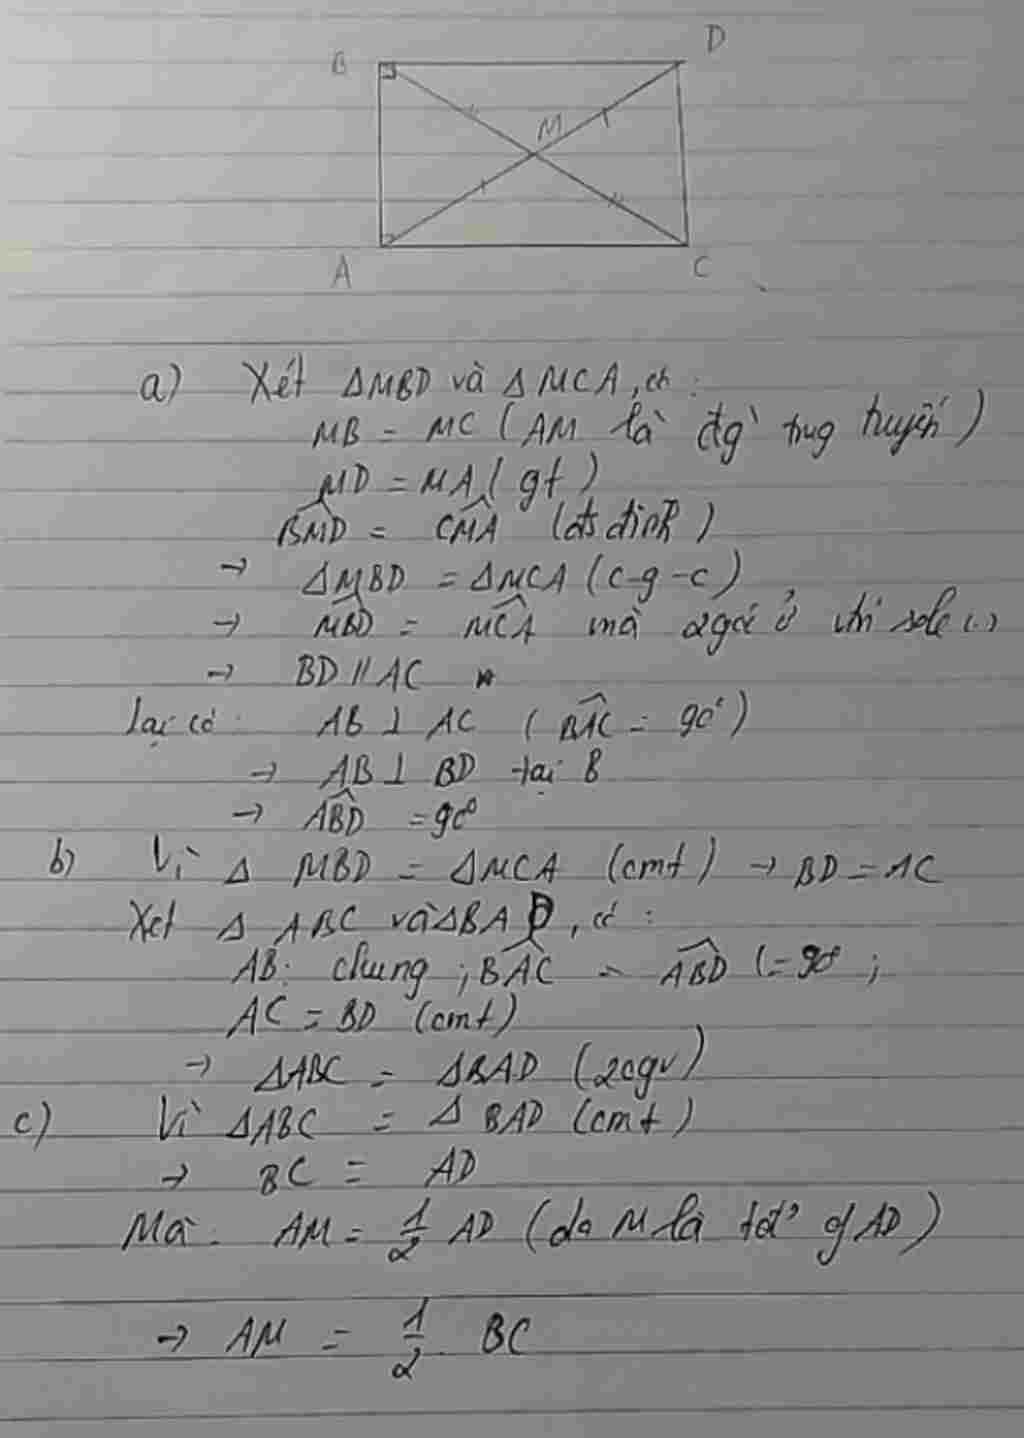 B D
M
A C
a) Xét ΔMBD và ΔMCA, có:
MB = MC (AM là đg` trug tuyến)
MD = MA (gt)
\widehat{BMD} = \widehat{CMA} (đs đỉnh)
→ ΔMBD = ΔMCA (c-g-c)
→ \widehat{MBD} = \widehat{MCA} mà 2 góc ở vtrí sole
→ BD // AC
Lại có: AB ⊥ AC (\widehat{BAC} = 90°)
→ AB ⊥ BD tại B
→ \widehat{ABD} = 90°
b) Vì Δ MBD = ΔMCA (cmt) → BD = AC
Xét Δ ABC và ΔBAD, có:
AB: chung ; \widehat{BAC} = \widehat{ABD} (= 90° ;
AC = BD (cmt)
→ ΔABC = ΔBAD (2cgv)
c) Vì ΔABC = Δ BAD (cmt)
→ BC = AD
Mà: AM = \frac{1}{2} AD (do M là AD)
→ AM = \frac{1}{2} . BC